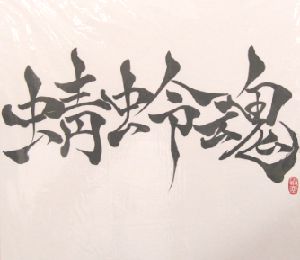 蜻蛉魂